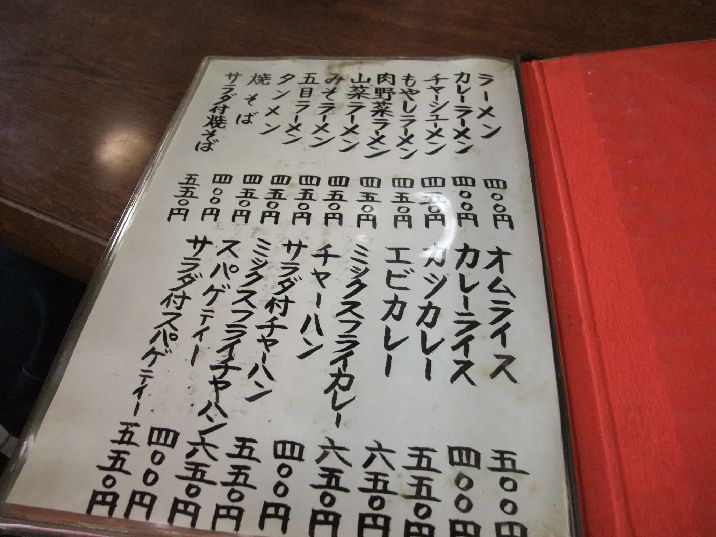 ラーメン 四〇〇円
カレーラーメン 四〇〇円
チャーシューメン 四五〇円
もやしラーメン 四五〇円
肉野菜ラーメン 四五〇円
山菜ラーメン 四五〇円
みそラーメン 四五〇円
五目ラーメン 四五〇円
タンメン 四五〇円
焼そば 四〇〇円
サラダ付焼そば 五五〇円
オムライス 五〇〇円
カレーライス 四〇〇円
カツカレー 五五〇円
エビカレー 六五〇円
ミックスフライカレー 六五〇円
チャーハン 四〇〇円
サラダ付チャーハン 五五〇円
ミックスフライチャハン 六五〇円
スパゲティー 四〇〇円
サラダ付スパゲティー 五五〇円